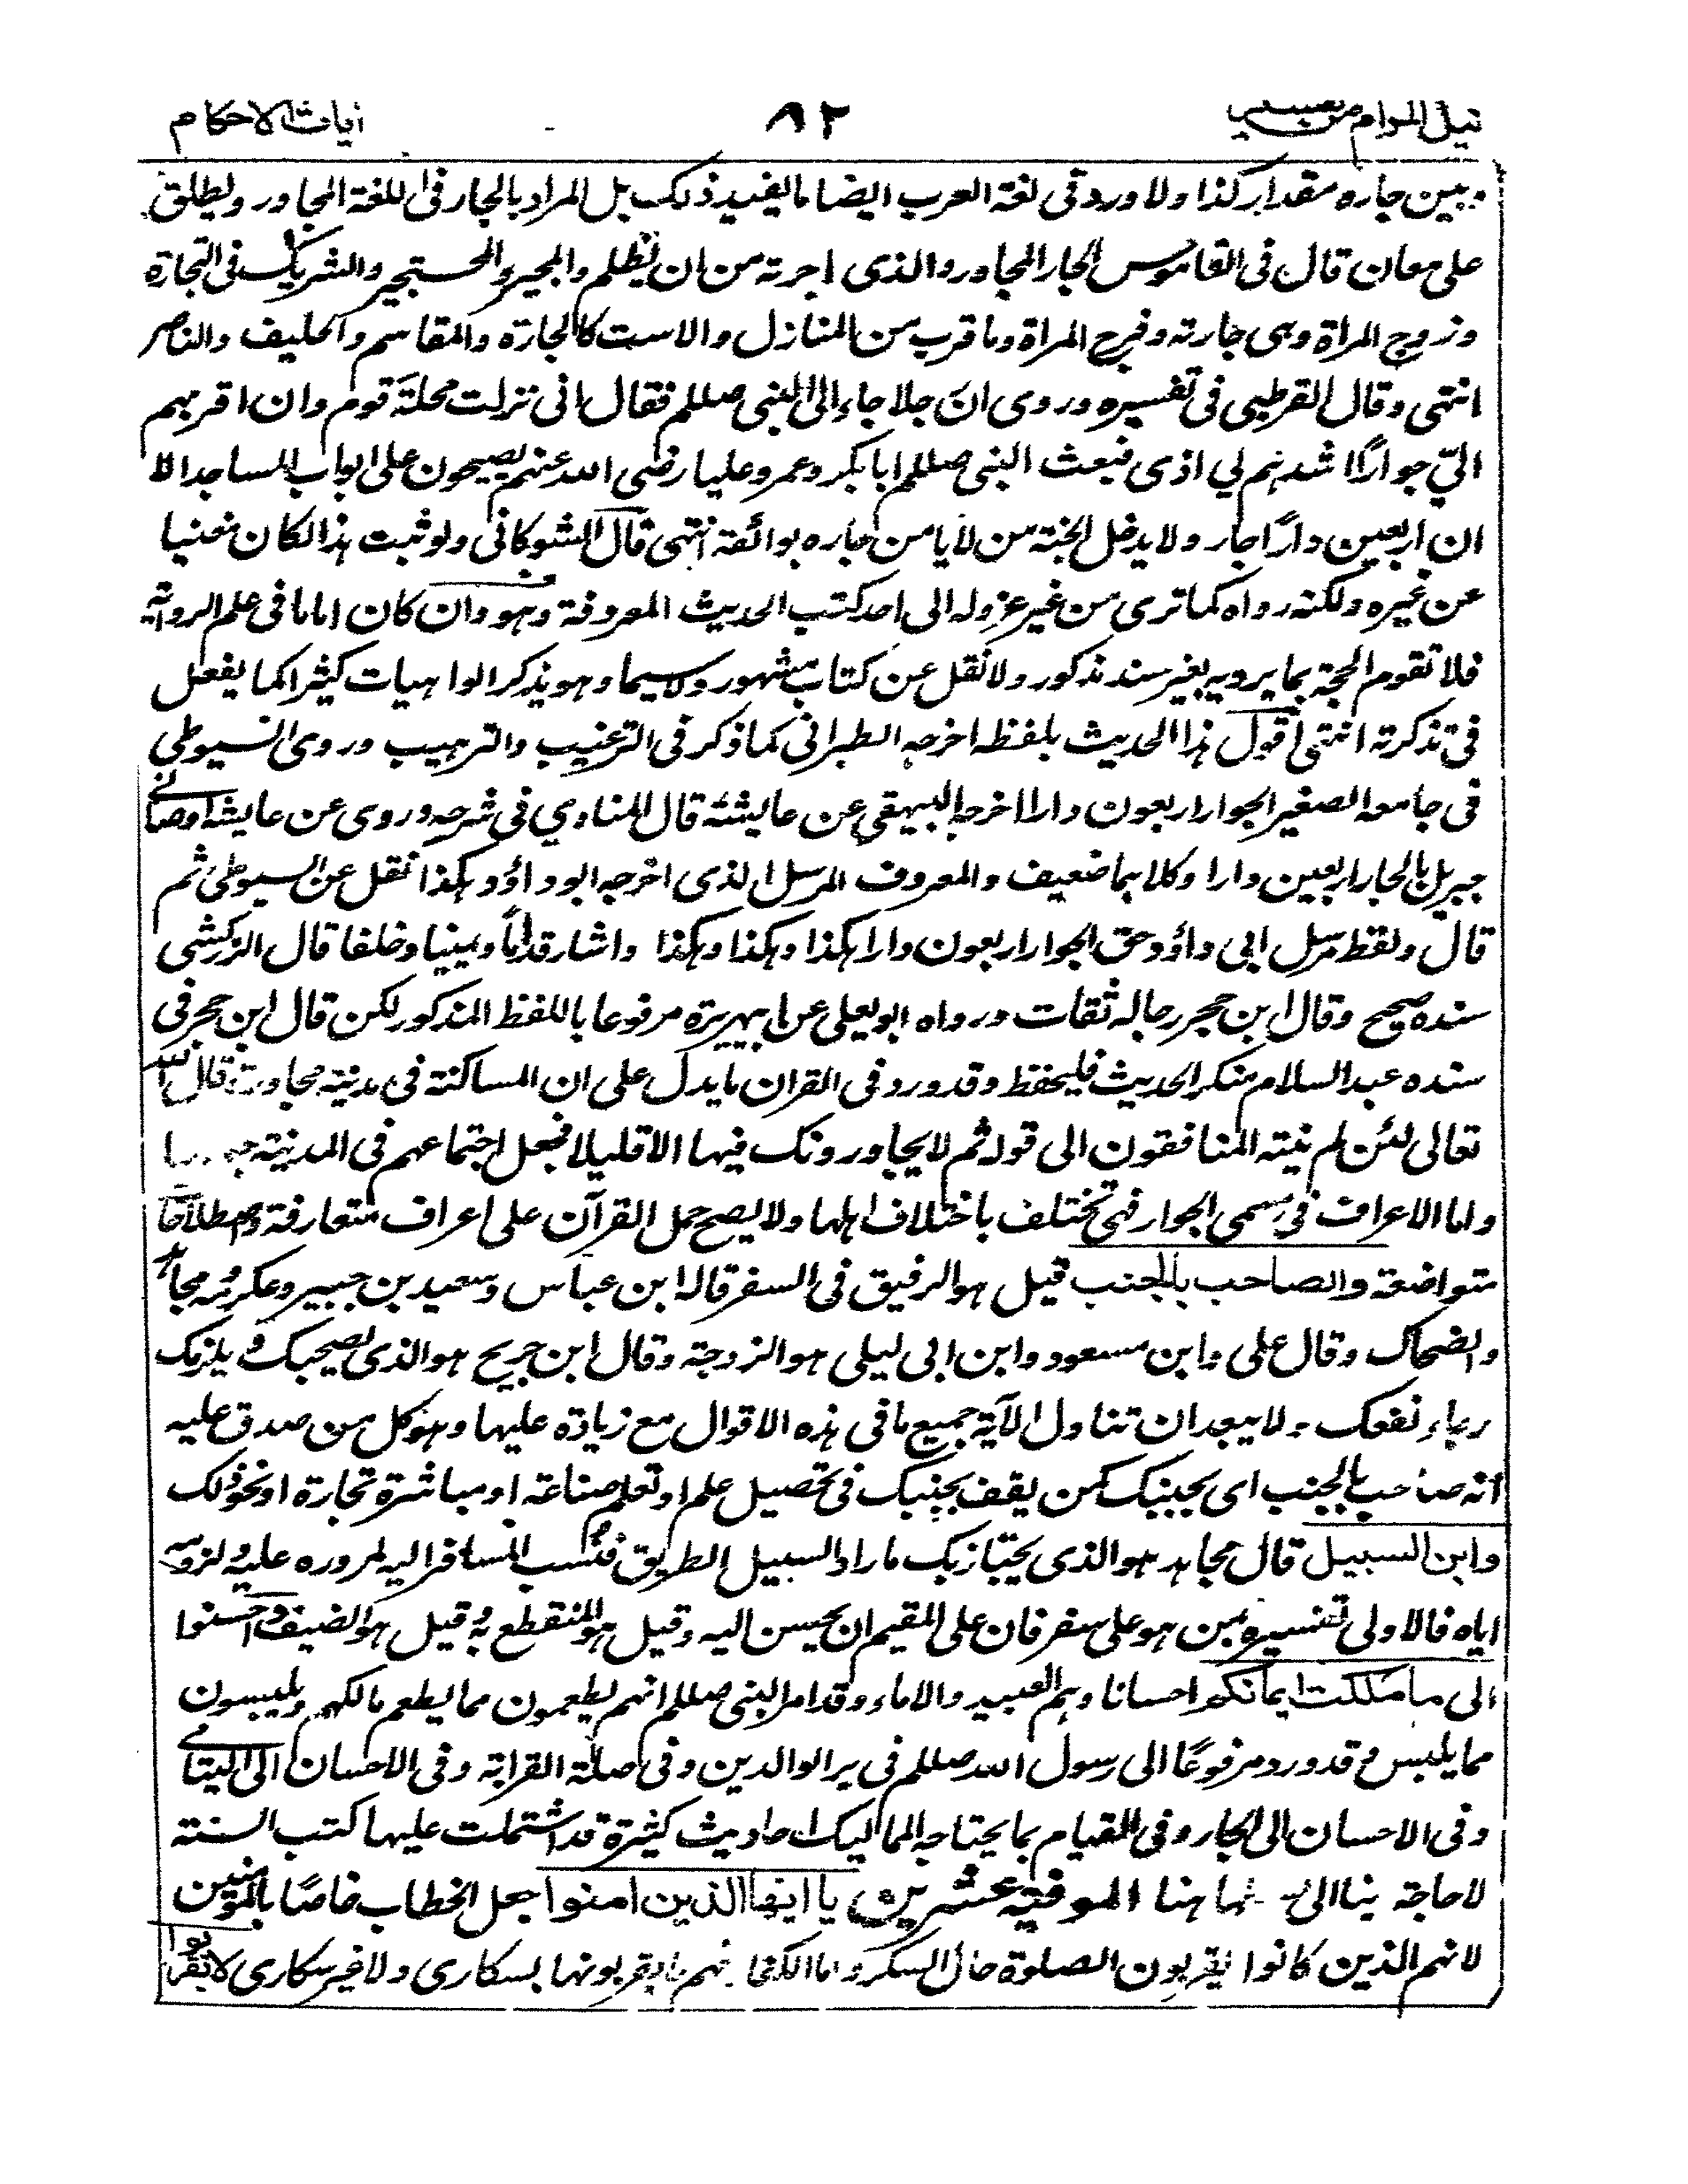 نيل المرام من تفسير
٨٢
آيات الاحكام
وبين جاره مقدار كذا ولا ورد في لغة العرب ايضا ما يفيد ذلك بل المراد بالجار في اللغة المجاور ويطلق
على معان قال في القاموس الجار المجاور والذى اجرته من ان يظلم والمجير والمستجير والشريك في التجارة
وزوج المرأة وهى جارته وفرج المراة وما قرب من المنازل والاست كالجارة والمقاسم والحليف والناصر
انتهى وقال القرطبي في تفسيره وروى ان رجلا جاء الى النبى صللم فقال انى نزلت محلة قوم وان اقربهم
اليّ جوارًا اشدهم لي اذى فبعث النبى صللم ابا بكر وعمر وعليا رضى الله عنهم يصيحون على ابواب المساجد الا
ان اربعين دارًا جار ولا يدخل الجنة من لا يامن جاره بوائقه انتهى قال الشوكانى ولو ثبت هذا لكان مغنيا
عن غيره ولكنه رواه كما ترى من غير عزو له الى احد كتب الحديث المعروفة وهو وان كان اماما في علم الرواية
فلا تقوم الحجة بما يرويه بغير سند مذكور ولا نقل عن كتاب مشهور ولا سيما وهو يذكر الواهيات كثيرا كما يفعل
في تذكرته انتهى اقول هذا الحديث بلفظه اخرجه الطبرانى كما ذكر في الترغيب والترهيب وروى السيوطى
في جامعه الصغير الجوار اربعون دارا اخرجه البيهقي عن عايشة قال المناوي في شرحه وروى عن عايشة اوصانى
جبريل بالجار اربعين دارا وكلاهما ضعيف والمعروف المرسل الذى اخرجه ابو داؤد هكذا نقل عن السيوطى ثم
قال ولفظ مرسل ابى داؤد حق الجوار اربعون دارا هكذا وهكذا وهكذا واشار قداما ويمينا وخلفا قال الزركشى
سنده صحيح وقال ابن حجر رجاله ثقات ورواه ابو يعلى عن ابيهريرة مرفوعا باللفظ المذكور لكن قال ابن حجر في
سنده عبد السلام منكر الحديث فليحفظ وقد ورد في القران ما يدل على ان المساكنة في مدينة مجاورة قال الله
تعالى لئن لم ينته المنافقون الى قوله ثم لا يجاورونك فيها الا قليلا فجعل اجتماعهم في المدينة
واما الاعراف في مسمى الجوار فهى تختلف باختلاف اهلها ولا يصح حمل القرآن على اعراف متعارفة واصطلاحات
متواضعة والصاحب بالجنب قيل هو الرفيق في السفر قاله ابن عباس وسعيد بن جبير وعكرمة ومجاهد
والضحاك وقال على وابن مسعود وابن ابى ليلى هو الزوجة وقال ابن جريج هو الذى يصحبك ويلزمك
رجاء نفعك ولا يبعد ان تناول الآية جميع ما في هذه الاقوال مع زيادة عليها وهو كل من صدق عليه
انه صاحب بالجنب اى بجنبك كمن يقف بجنبك في تحصيل علم او تعلم صناعة او مباشرة تجارة او نحو ذلك
وابن السبيل قال مجاهد هو الذى يجتاز بك مارا والسبيل الطريق فنسب المسافر اليه لمروره عليه ولزومه
اياه فالاولى تفسيره بمن هو على سفر فان على المقيم ان يحسن اليه وقيل هو المنقطع به وقيل هو الضيف واحسنوا
الى ما ملكت ايمانكم احسانا وهم العبيد والاماء وقد امر النبى صللم انهم يطعمون مما يطعم مالكهم ويلبسون
مما يلبس وقد ورد مرفوعًا الى رسول الله صللم في بر الوالدين وفى صلة القرابة وفى الاحسان الى اليتامى
وفى الاحسان الى الجار وفى القيام بما يحتاجه المماليك احاديث كثيرة قد اشتملت عليها كتب السنة
لا حاجة بنا الى ها هنا الموفية عشرين يا ايها الذين امنوا جعل الخطاب خاصًا بالمؤمنين
لانهم الذين كانوا يقربون الصلوة حال السكر واما الكفار فهم لا يقربونها بسكارى ولا غير سكارى لا تقربوا